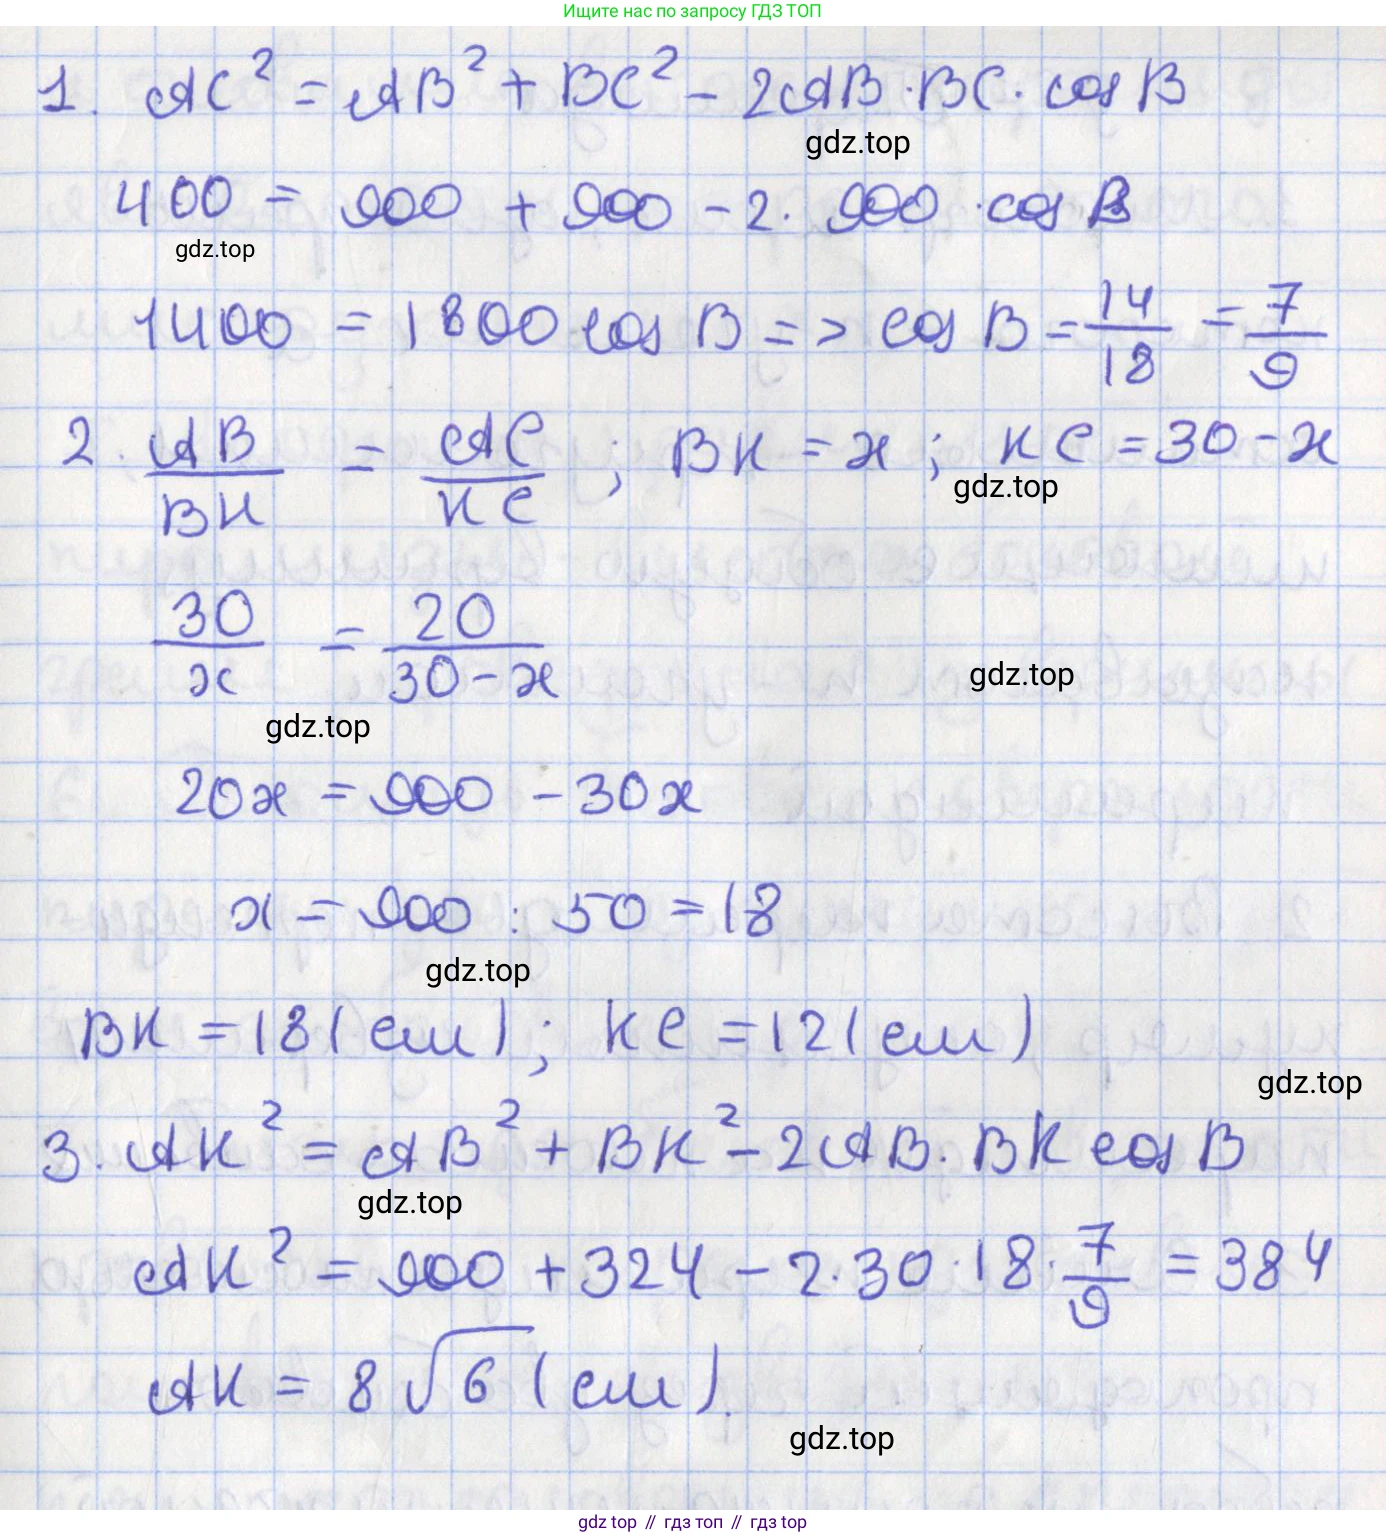 Ищите нас по запросу ГДЗ ТОП
1. AC² = AB² + BC² - 2AB·BC·cos B
gdz.top
400 = 900 + 900 - 2·900·cos B
gdz.top
1400 = 1800 cos B => cos B = 14/18 = 7/9
2. AB/BK = AC/KC ; BK = x ; KC = 30 - x
gdz.top
30/x = 20/(30 - x)
gdz.top
gdz.top
20x = 900 - 30x
x = 900 : 50 = 18
gdz.top
BK = 18 (см) ; KC = 12 (см)
gdz.top
3. AK² = AB² + BK² - 2AB·BK cos B
gdz.top
AK² = 900 + 324 - 2·30·18·7/9 = 384
AK = 8√6 (см).
gdz.top
gdz top // гдз топ // gdz top